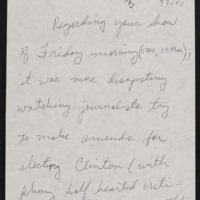 Regarding your show
of Friday morning (
it was more disgusting
watching journalists try
to make amends for
electing Clinton (with
phony half hearted criti-